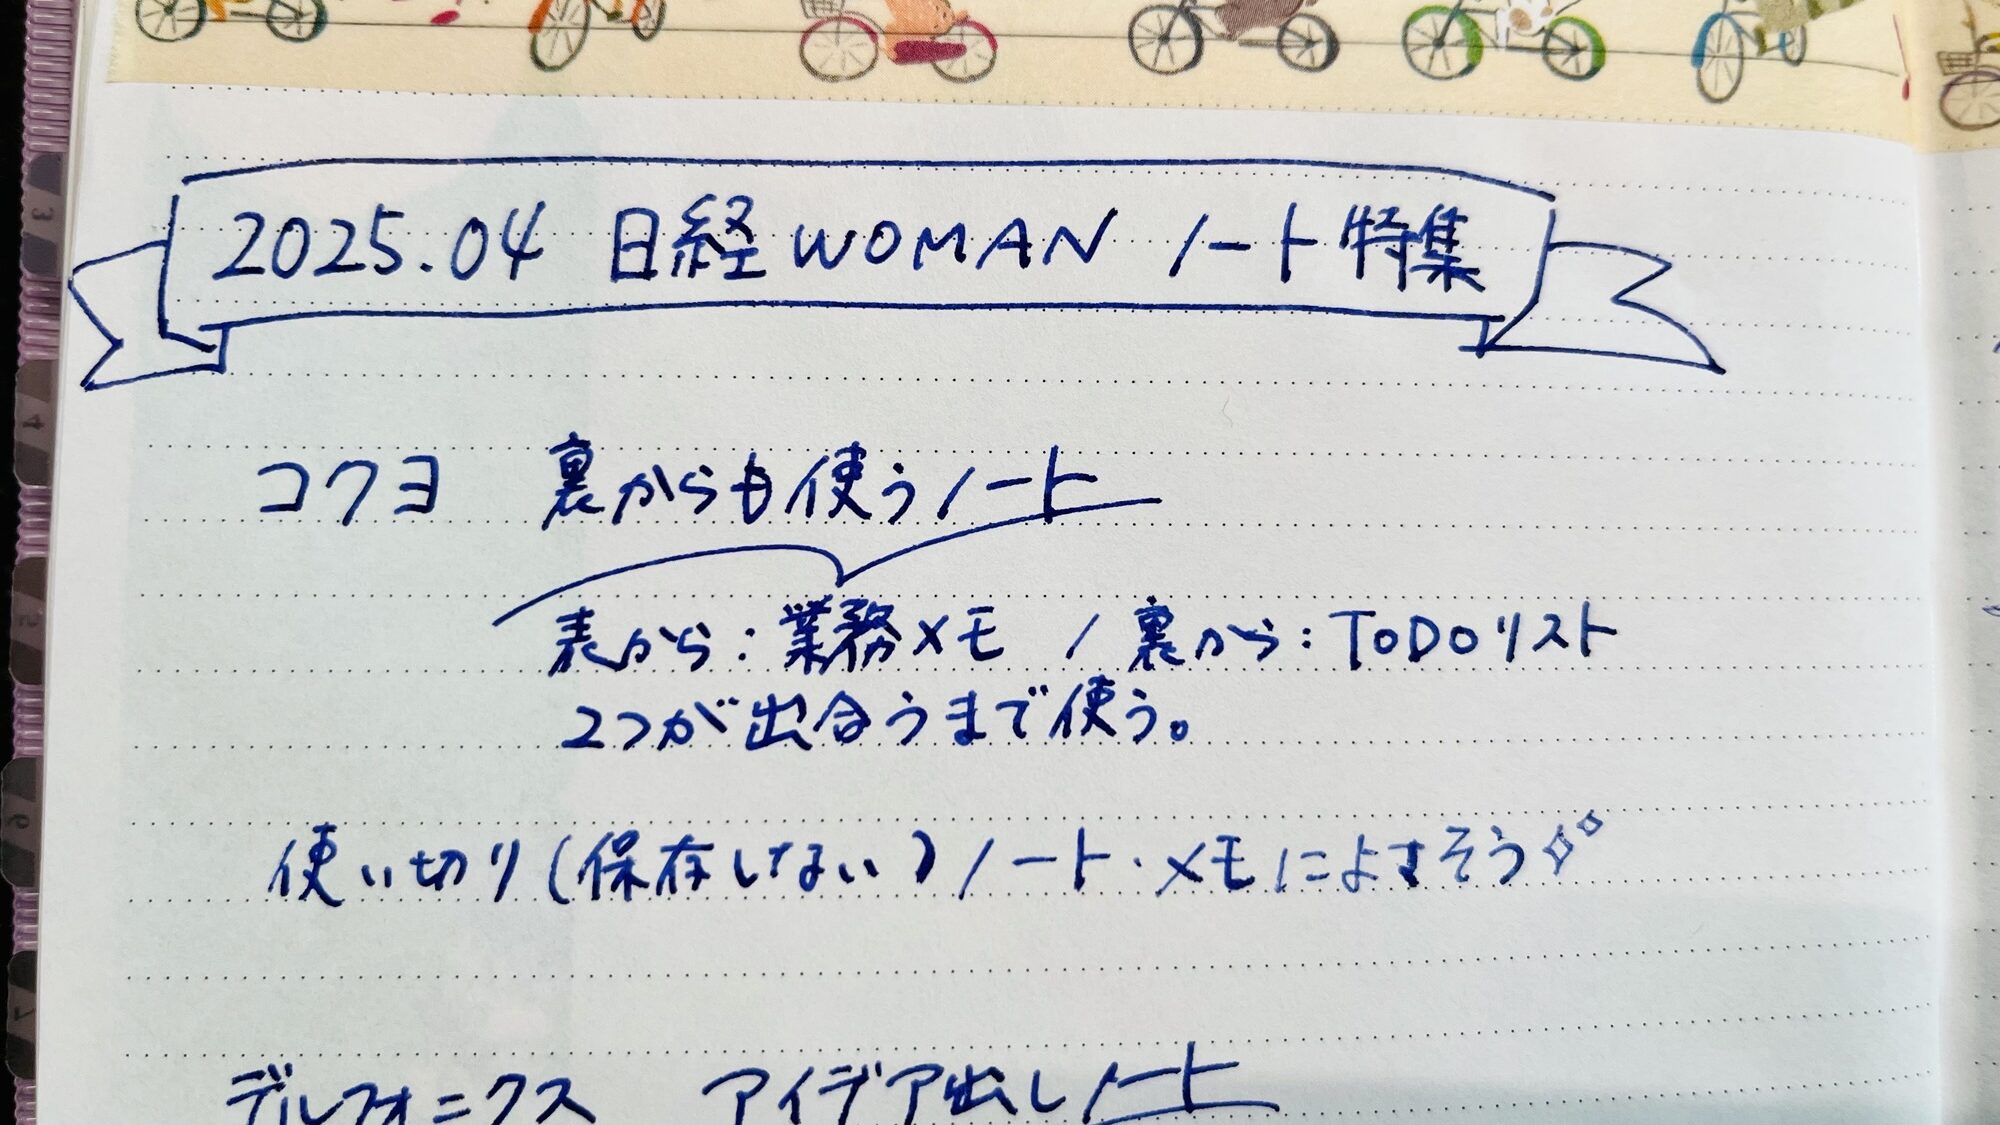 2025.04 日経WOMAN ノート特集
コクヨ 裏からも使うノート
表から：業務メモ / 裏から：ToDoリスト
2つが出合うまで使う。
使い切り(保存しない)ノート・メモによさそう
デルフォニクス アイデア出しノート